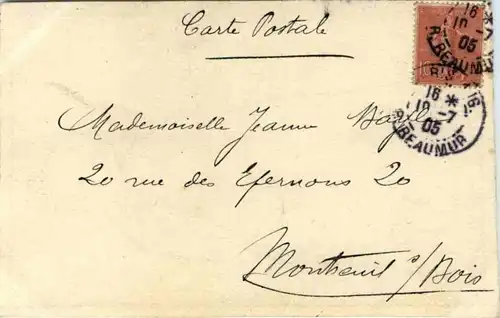 Carte Postale
16 *
10 -7
05
R. BEAUMUR
16 * 16
10 -7
05
R. BEAUMUR
Mademoiselle Jeanne
20 rue des Efernons 20
Montreuil s/Bois